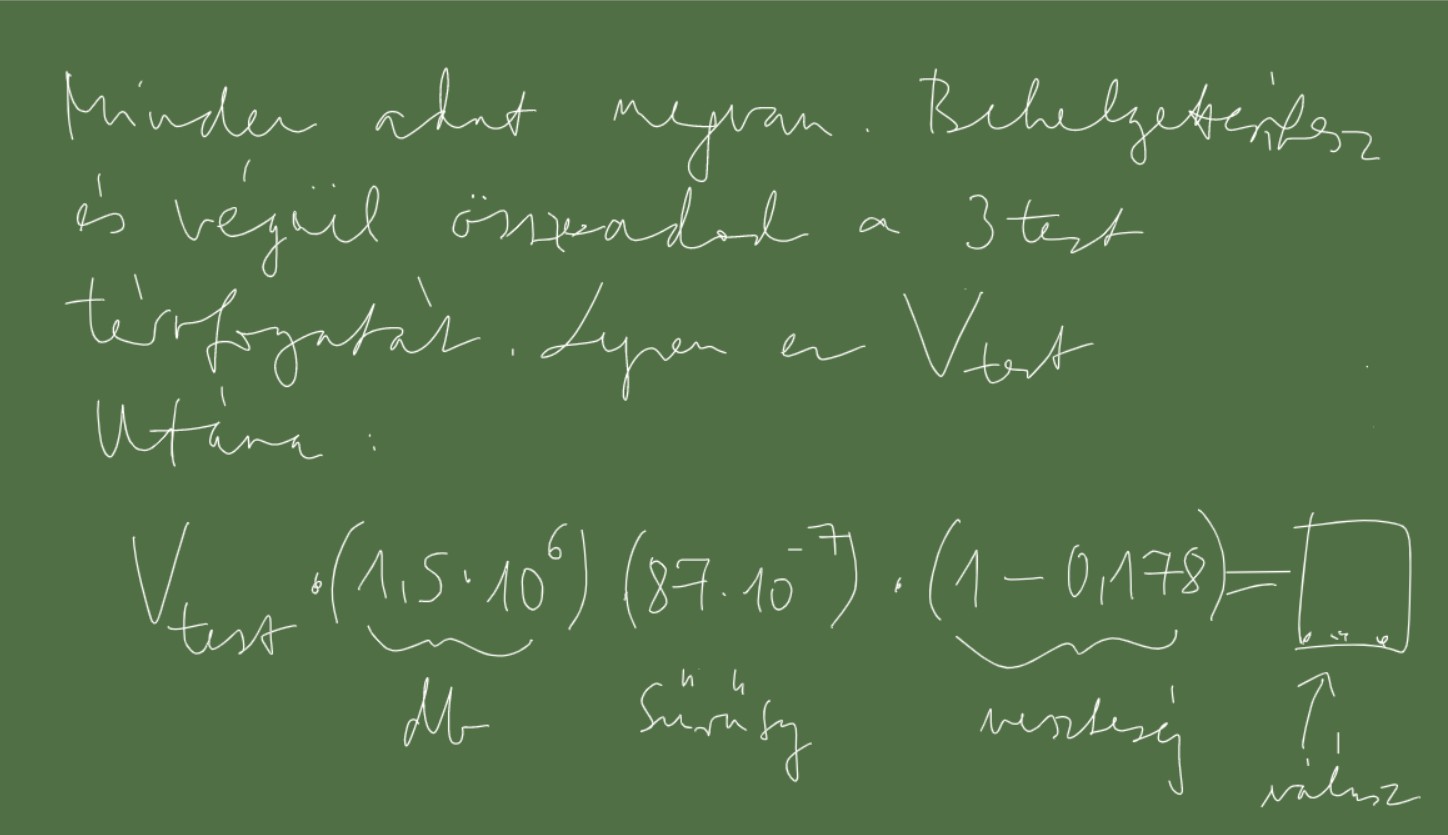 Minden adat megvan. Behelyettesítesz
és végül összeadod a 3 test
térfogatát. Legyen ez V_test
Utána:
V_test · (1,5 · 10^6) (87 · 10^-7) · (1 - 0,178) =
db sűrűség veszteség
válasz